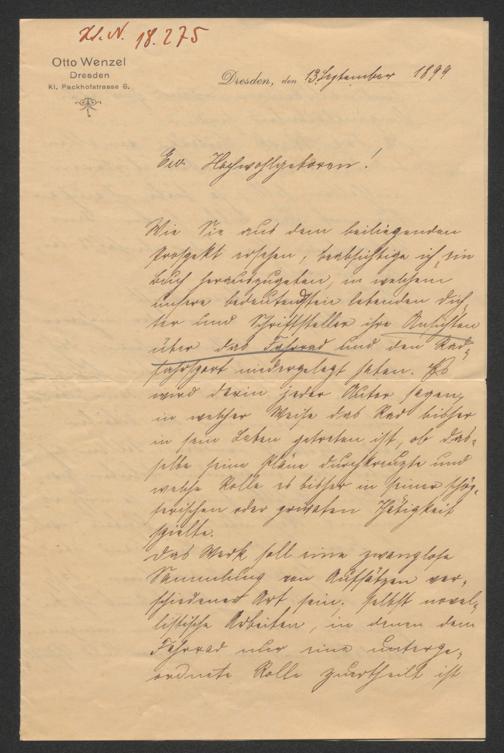 H.I.N. 18.275
Otto Wenzel
Dresden
Kl. Packhofstrasse 6.
Dresden, den 13. September 1899
Ew. Hochwohlgeboren!
Wie Sie aus dem beiliegenden
Prospekt ersehen, beabsichtige ich, ein
Buch herauszugeben, in welchem
unsere bedeutendsten lebenden Dich-
ter und Schriftsteller ihre Ansichten
über das Fahrrad und den Rad-
fahrsport niedergelegt haben. Es
wird darin jeder Autor sagen,
in welcher Weise das Rad bisher
in sein Leben getreten ist, ob das-
selbe seine Pläne durchkreuzte und
welche Rolle es bisher in seiner schöp-
ferischen oder privaten Thätigkeit
spielte.
Das Werk soll eine zwanglose
Sammlung von Aufsätzen ver-
schiedener Art sein. Selbst novel-
listische Arbeiten, in denen dem
Fahrrad nur eine unterge-
ordnete Rolle zuertheilt ist